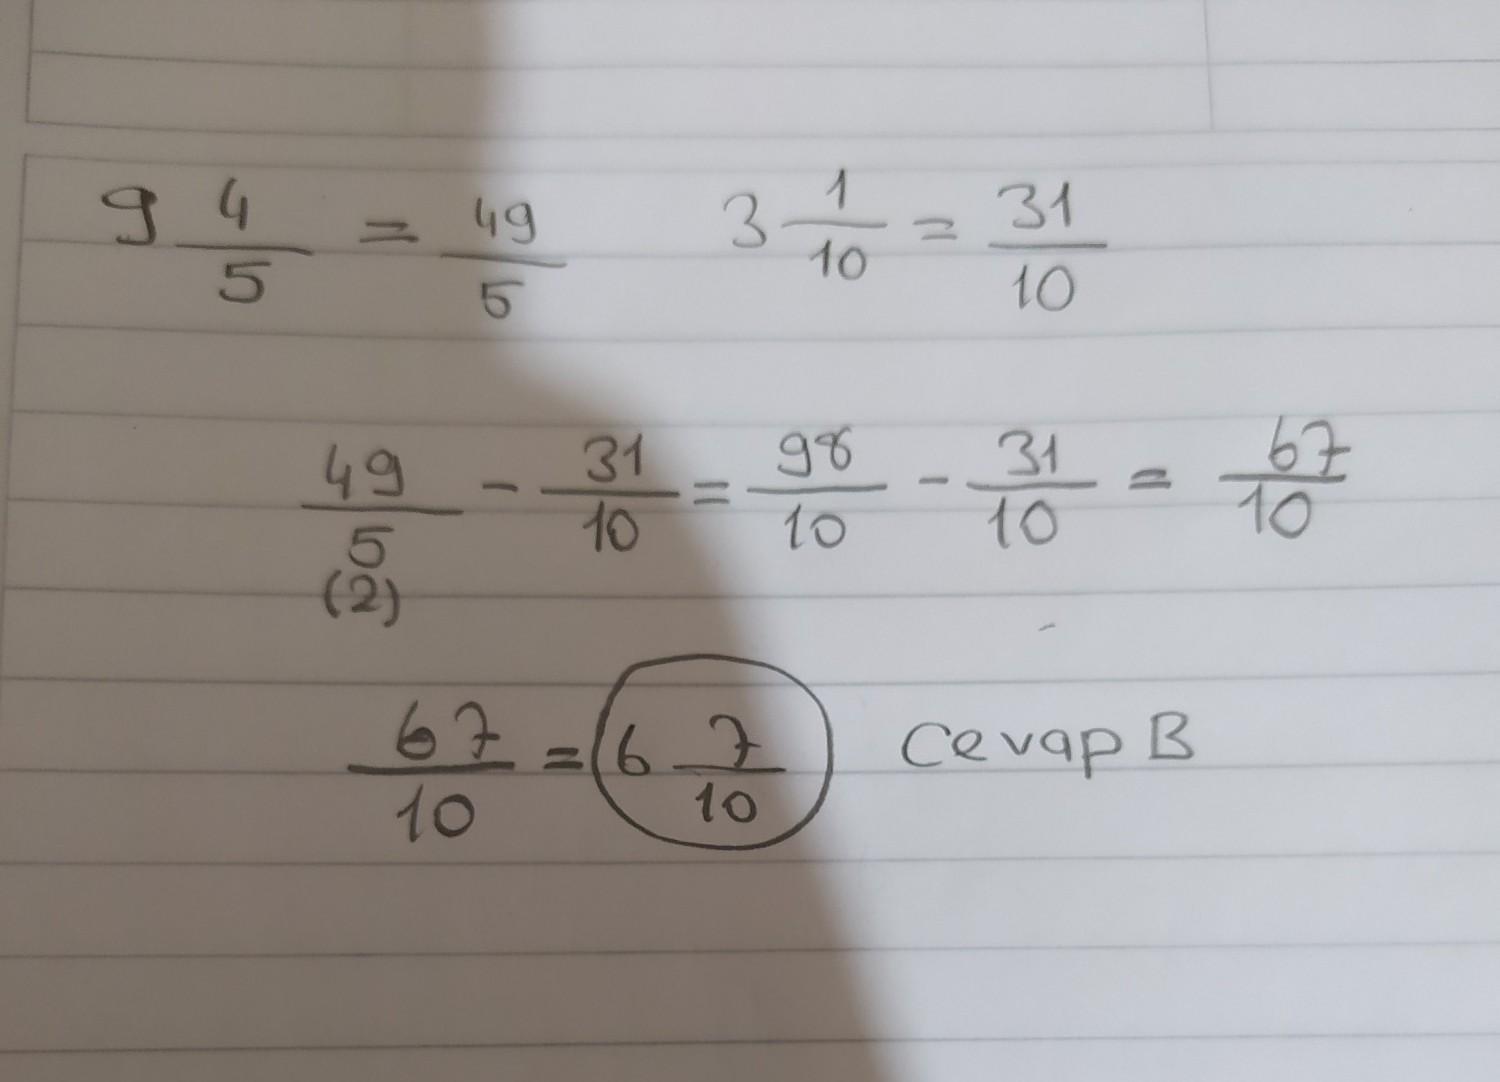 9 4/5 = 49/5 3 1/10 = 31/10
49/5 - 31/10 = 98/10 - 31/10 = 67/10
(2)
67/10 = 6 7/10 Cevap B